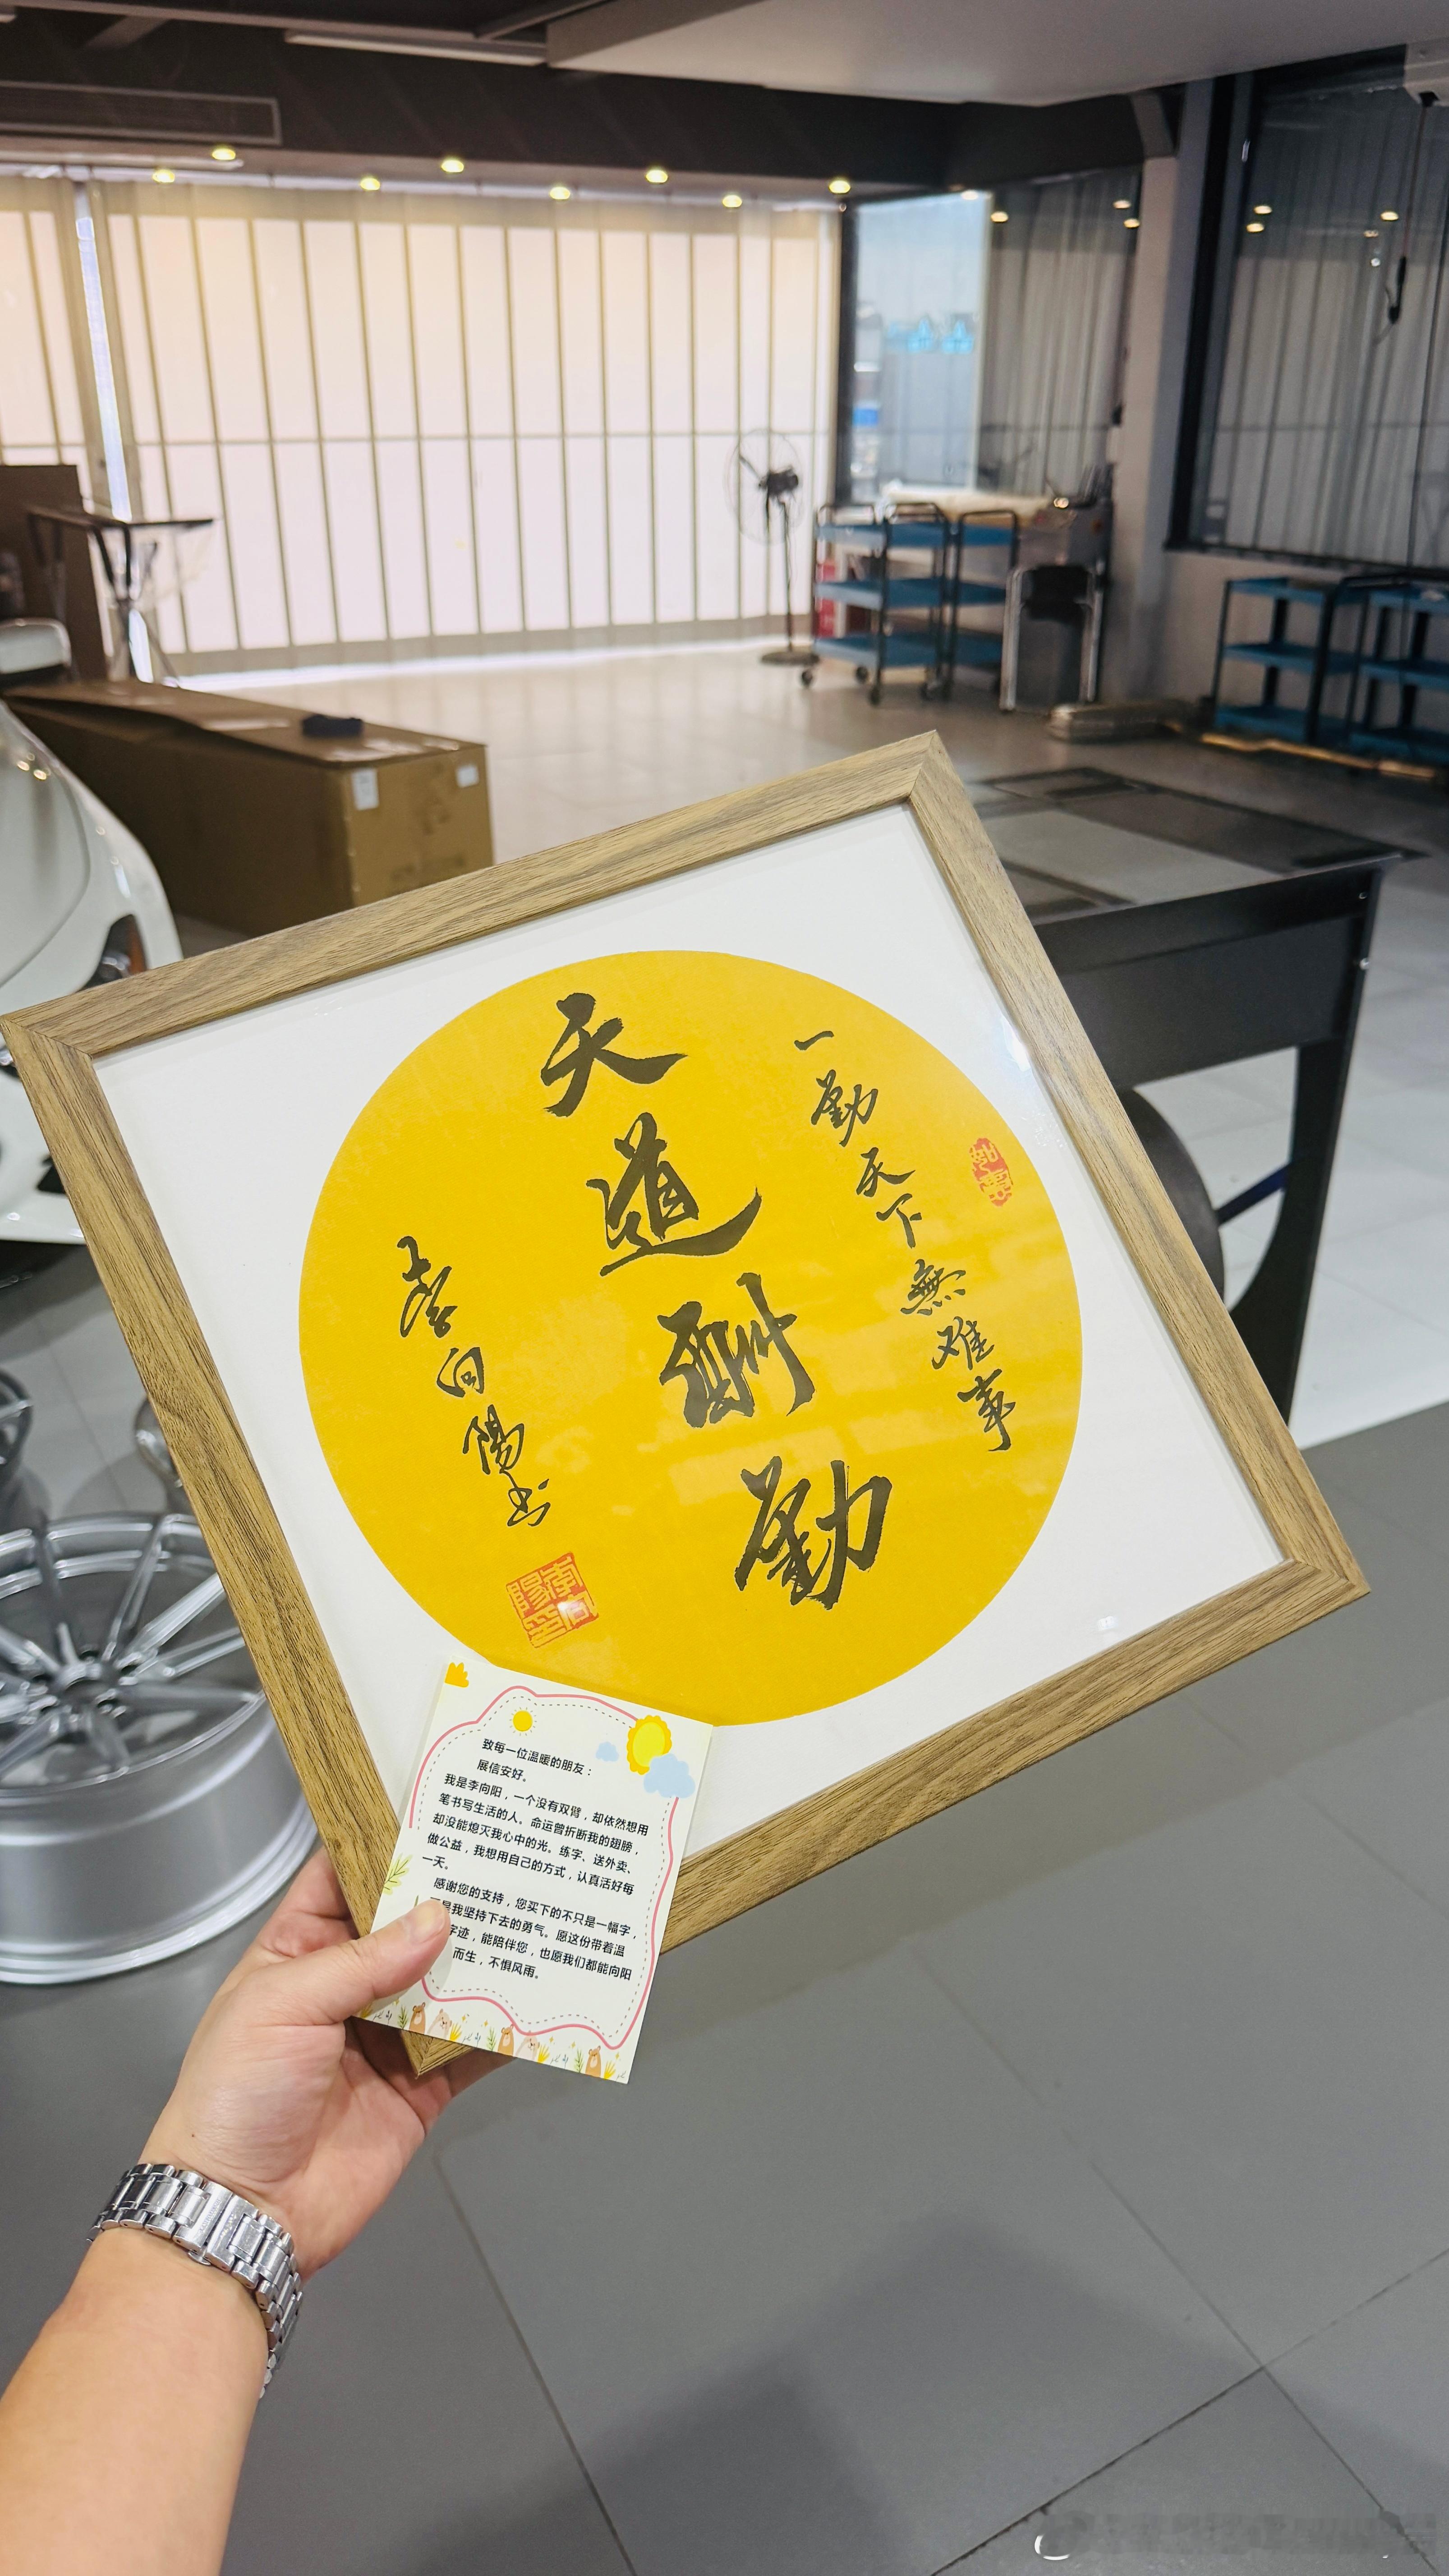 一勤天下無难事
天道酬勤
李向陽书
致每一位温暖的朋友：
展信安好。
我是李向阳，一个没有双臂，却依然想用
笔书写生活的人。命运曾折断我的翅膀，
却没能熄灭我心中的光。练字、送外卖、
做公益，我想用自己的方式，认真活好每
一天。
感谢您的支持，您买下的不只是一幅字，
是我坚持下去的勇气。愿这份带着温
字迹，能陪伴您，也愿我们都能向阳
而生，不惧风雨。